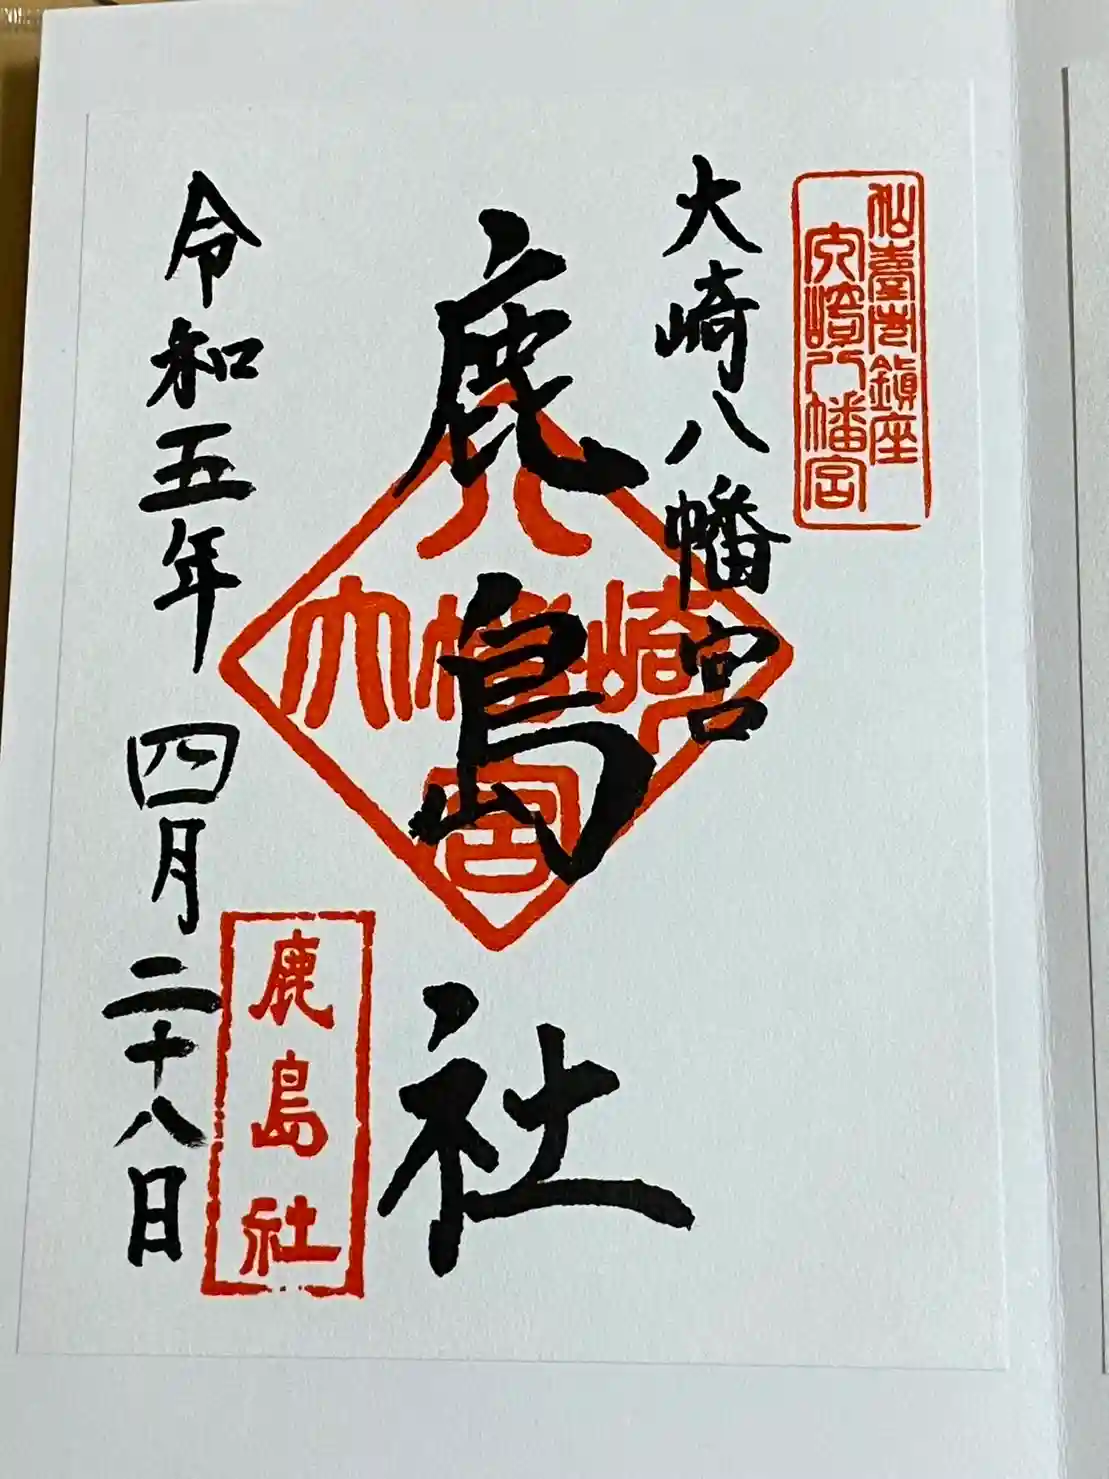 仙臺市鎮座
大崎八幡宮
大崎八幡宮
鹿島社
八
大幡崎
宮
鹿島社
令和五年 四月二十八日